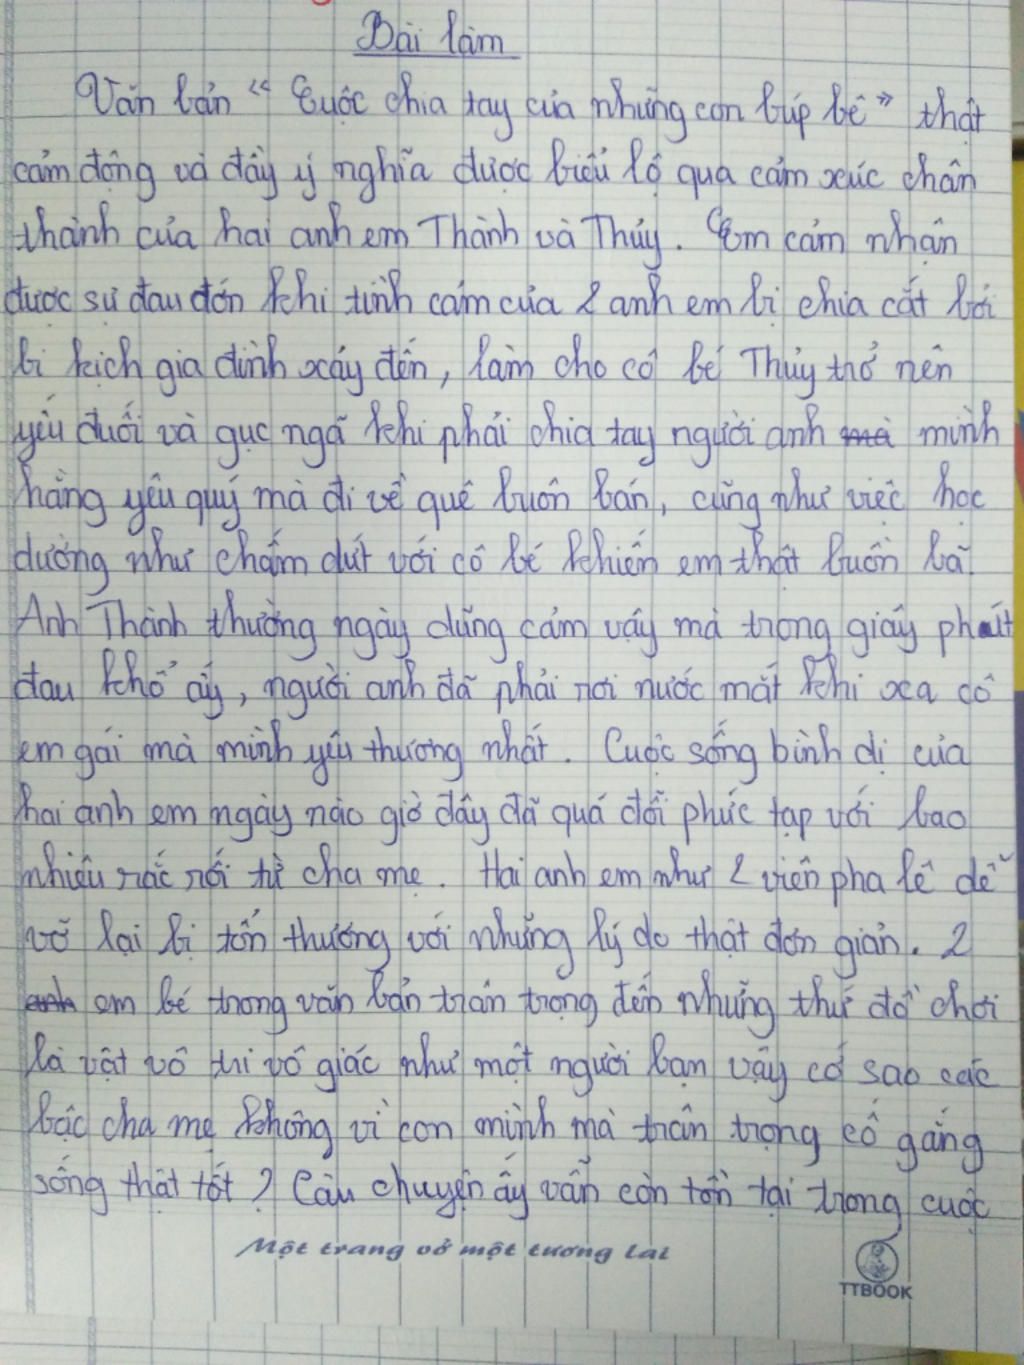 Bài làm
Văn bản " Cuộc chia tay của những con búp bê " thật
cảm động và đầy ý nghĩa được biểu lộ qua cảm xúc chân
thành của hai anh em Thành và Thủy. Em cảm nhận
được sự đau đớn khi tình cảm của 2 anh em bị chia cắt bởi
bi kịch gia đình xảy đến, làm cho cô bé Thủy trở nên
yếu đuối và gục ngã khi phải chia tay người anh mà mình
hằng yêu quý mà đi về quê buôn bán, cũng như việc học
dường như chấm dứt với cô bé khiến em thật buồn bã.
Anh Thành thường ngày dũng cảm vậy mà trong giây phút
đau khổ ấy, người anh đã phải rơi nước mắt khi xa cô
em gái mà mình yêu thương nhất. Cuộc sống bình dị của
hai anh em ngày nào giờ đây đã quá đỗi phức tạp với bao
nhiêu rắc rối từ cha mẹ. Hai anh em như 2 viên pha lê dễ
vỡ lại bị tổn thương với những lý do thật đơn giản. 2
anh em bé trong văn bản trân trọng đến những thứ đồ chơi
là vật vô tri vô giác như một người bạn vậy cớ sao các
bậc cha mẹ không vì con mình mà trân trọng cố gắng
sống thật tốt? Câu chuyện ấy vẫn còn tồn tại trong cuộc
Một trang vở một tương lai
TTBOOK